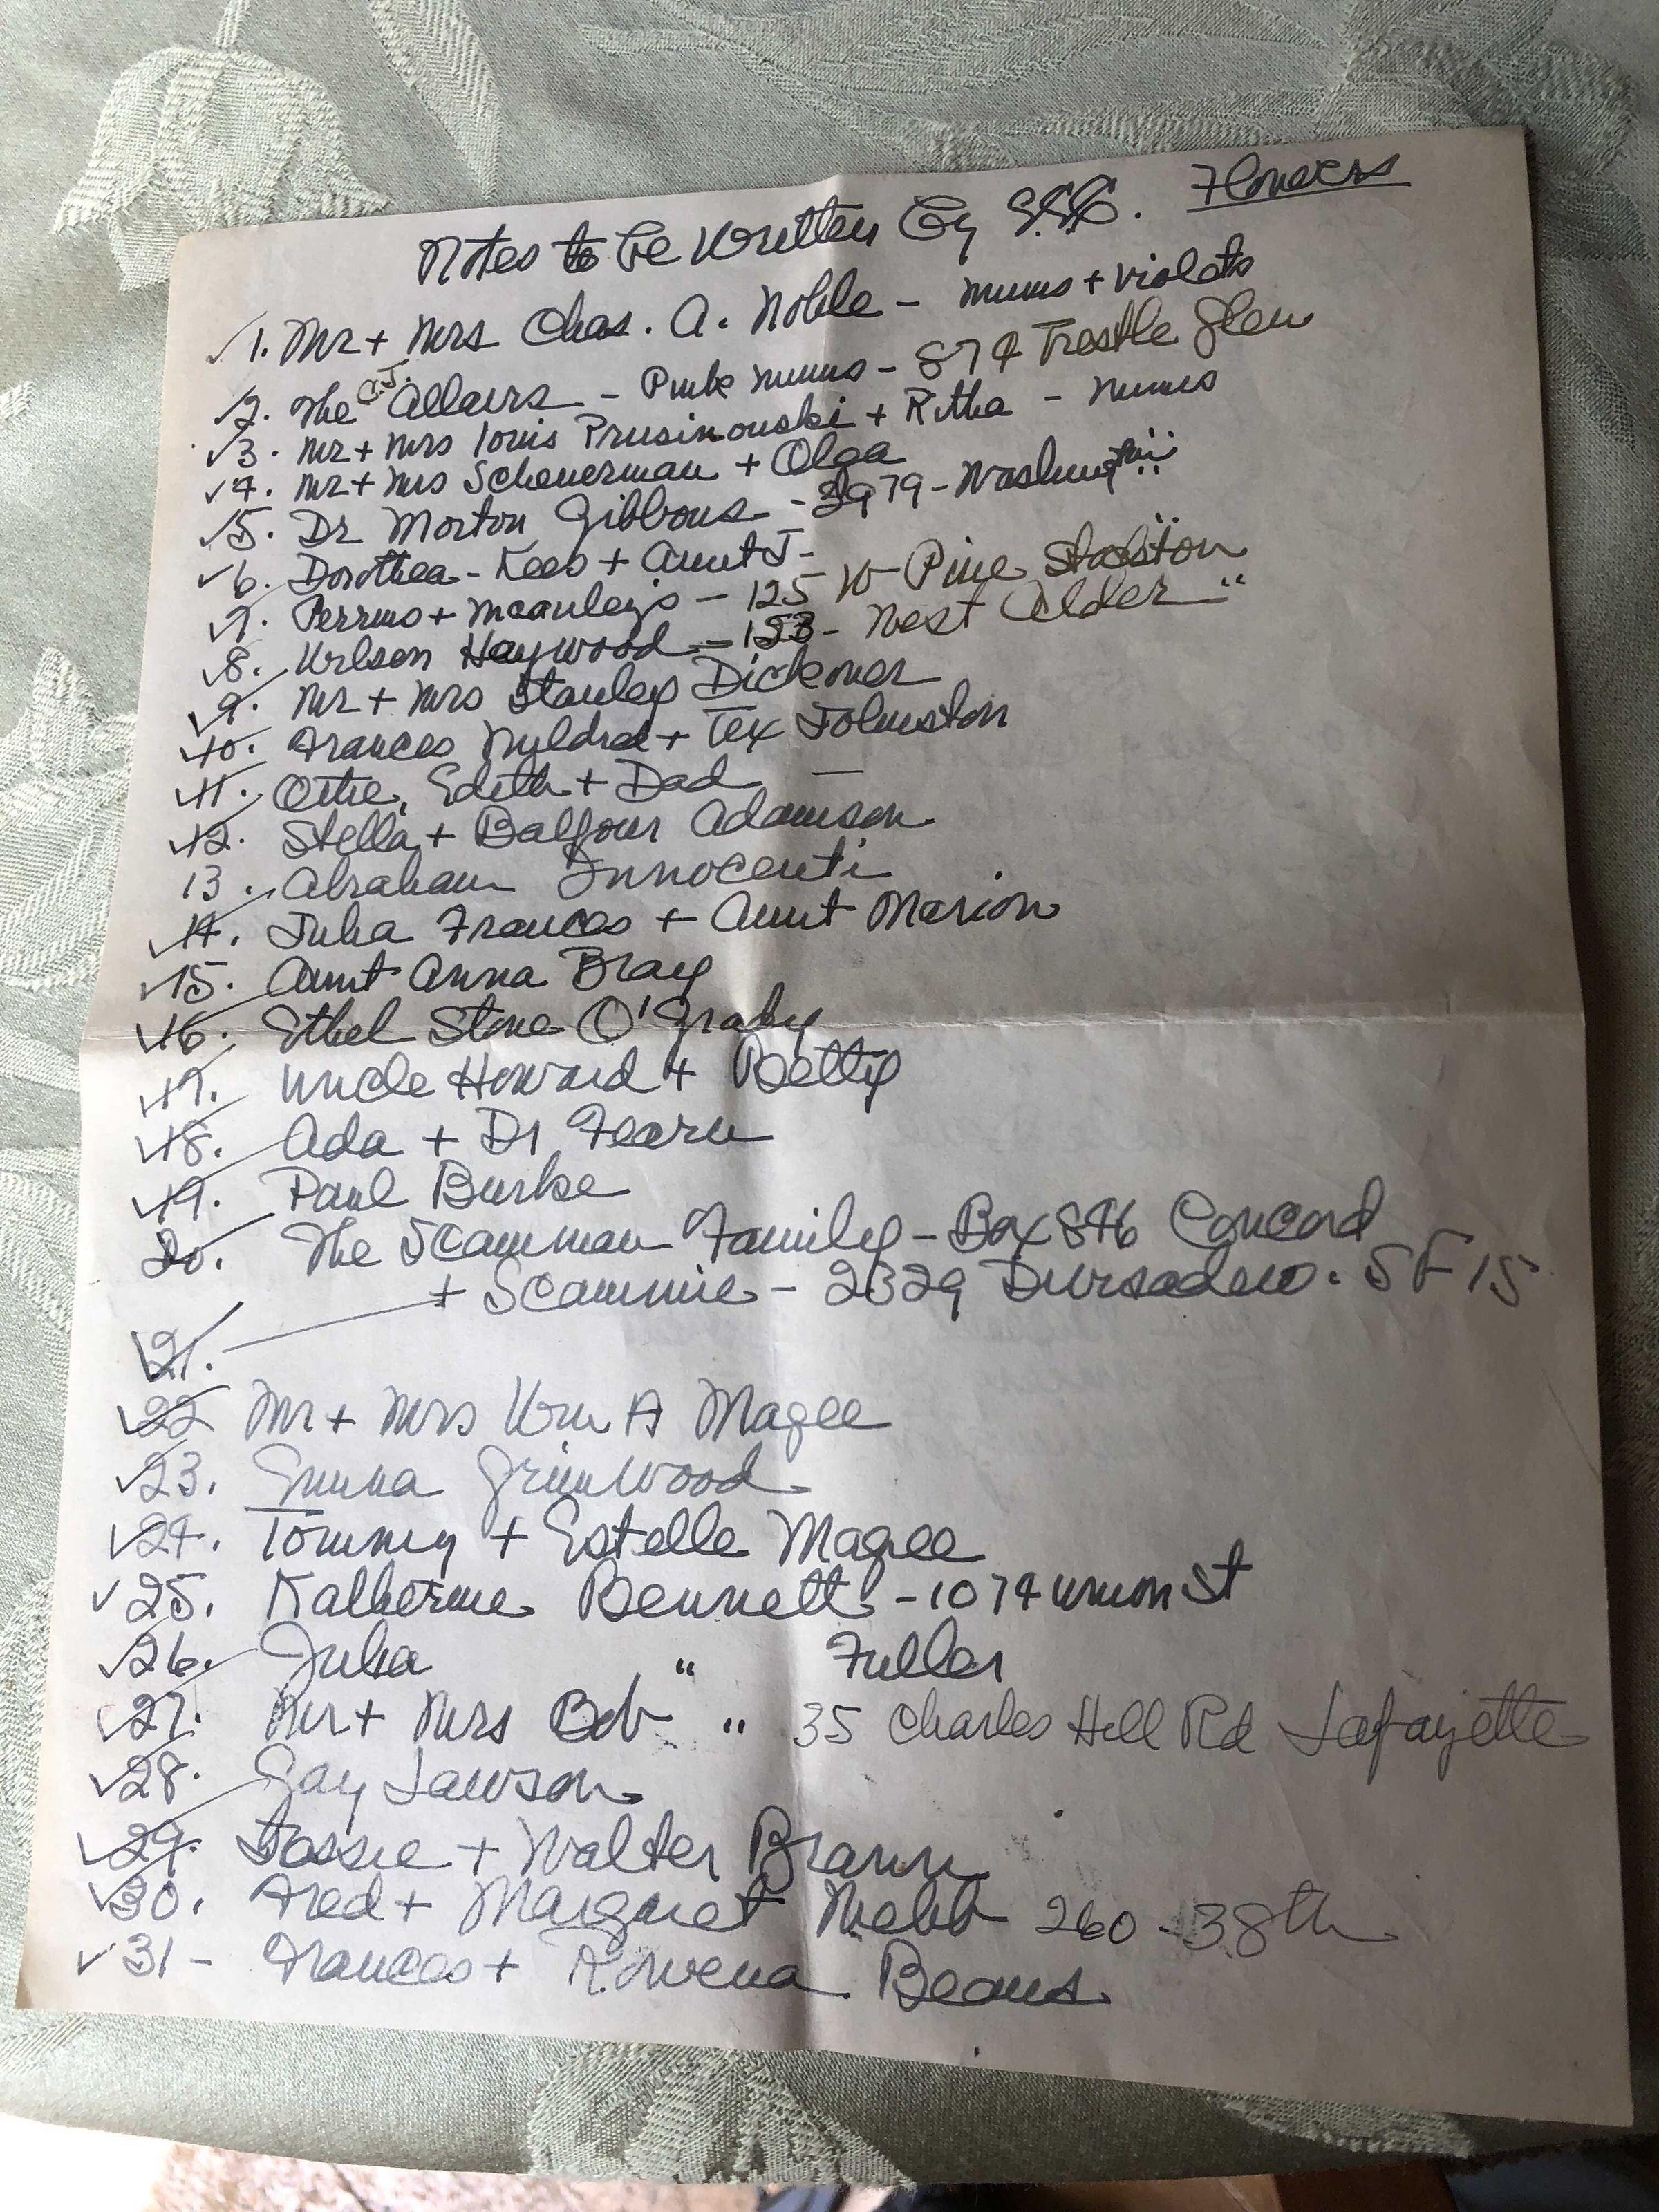 Notes to be Written by Flowers
✓ 1. Mr + Mrs Chas. A. Noble - mums + violets
✓ 2. The C.J. Allairs - Pink mums - 874 Trestle Glen
✓ 3. Mr + Mrs Louis Prusinouski + Ritha - mums
✓ 4. Mr + Mrs Scheuerman + Olga
✓ 5. Dr Morton Gibbons - 3979 - Washington
✓ 6. Dorothea - Kees + Aunt J -
✓ 7. Perrins + McAuley's - 125 W Pine Stockton
✓ 8. Wilson Haywood - 153 - West Alder "
✓ 9. Mr + Mrs Stanley Dickover
✓ 10. Frances Myldred + Tex Johnston
✓ 11. Ottie, Edith + Dad -
✓ 12. Stella + Balfour Adamson
13. Abraham Innocenti
✓ 14. Julia Frances + Aunt Marion
✓ 15. Aunt Anna Bray
✓ 16. Ethel Stone O'Grady
✓ 17. Uncle Howard + Betty
✓ 18. Ada + Dr Fearn
✓ 19. Paul Burke
20. The Scamman Family - Box 846 Concord
+ Scammie - 2329 Divisadero. SF 15
✓ 21.
✓ 22 Mr + Mrs Wm A Magee
✓ 23. Emma Grimwood
✓ 24. Tommy + Estelle Magee
✓ 25. Katherine Bennett - 1074 Union St
✓ 26. Julia " Fuller
✓ 27. Mr + Mrs Bob " 35 Charles Hill Rd Lafayette
✓ 28. Gay Lawson
✓ 29. + Walter Brann
✓ 30. Fred + Margaret Webb 260 - 38th
✓ 31 - Frances + Rowena Beans